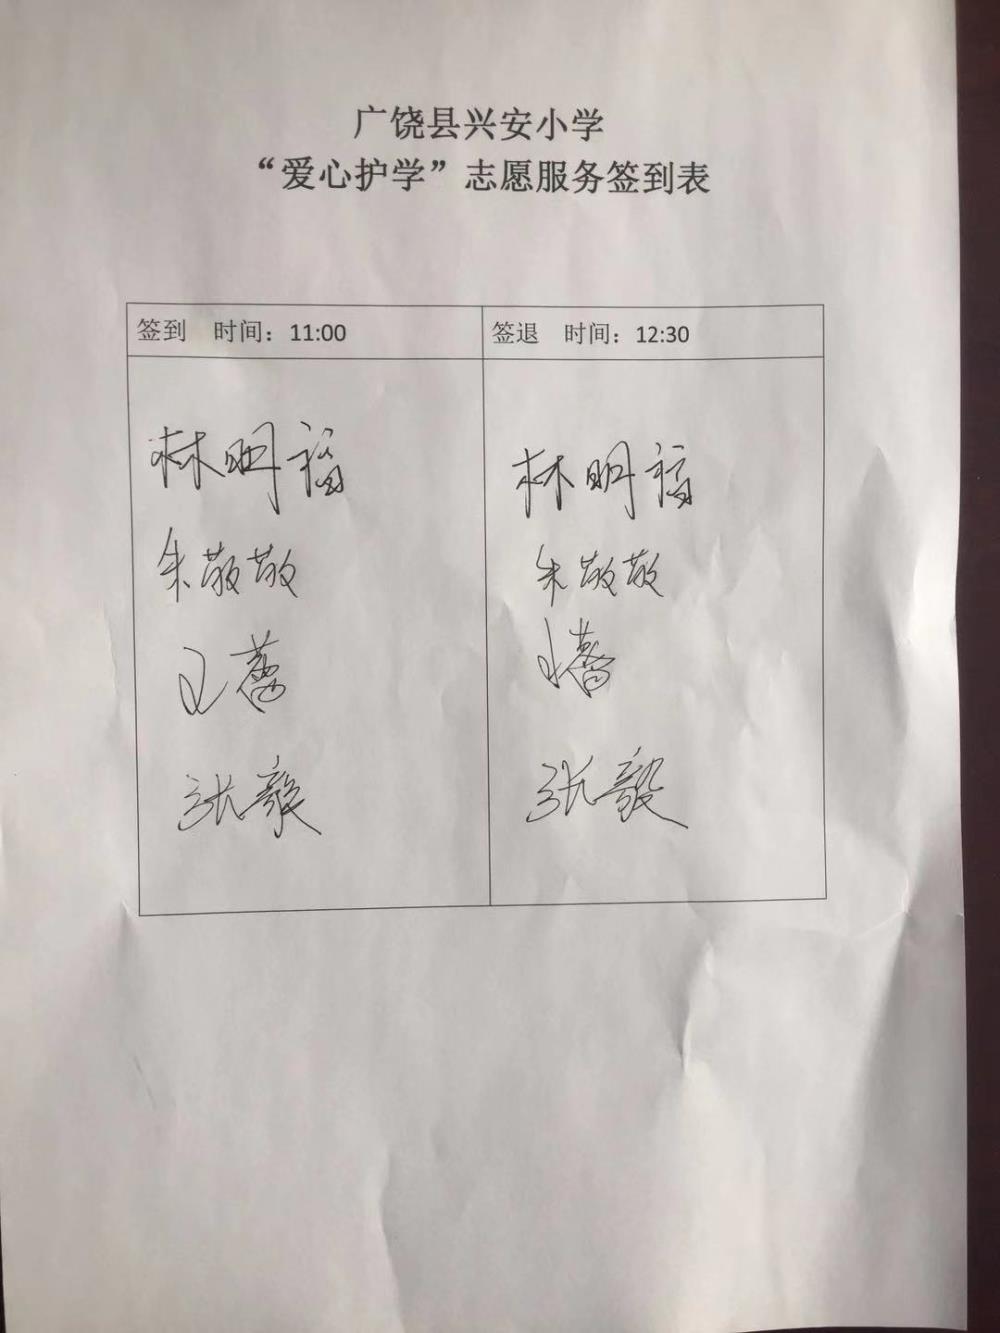 广饶县兴安小学
“爱心护学”志愿服务签到表
签到 时间：11:00
签退 时间：12:30
林明福
林明福
朱敬敬
朱敬敬
张毅
张毅